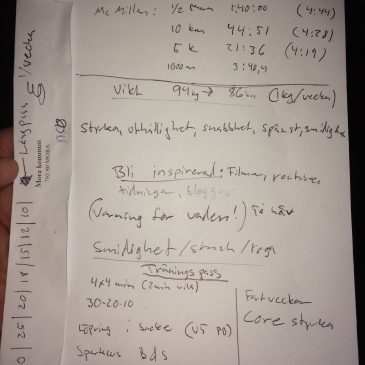 Mc Millan: 1/2 mara 1:40:00 (4:44)
10 km 44.51 (4:28)
5 k 21:36 (4:19)
1000 m 3:40,4
Vikt 94kg → 86kg (1kg/veckan)
Styrka, uthållighet, snabbhet, spänst, smidighet
Bli inspirerad: Filmer,
tidningar, bloggar
(Varning för vaden!)
Smidighet/stretch/yoga
Träningspass
4x4 min (2min vila)
30-20-10
Löpning i backe
Spartacus
Core styrka
Långpass 1/vecka
Mora kommun
792 80 MORA
25/20/18/15/12/10/